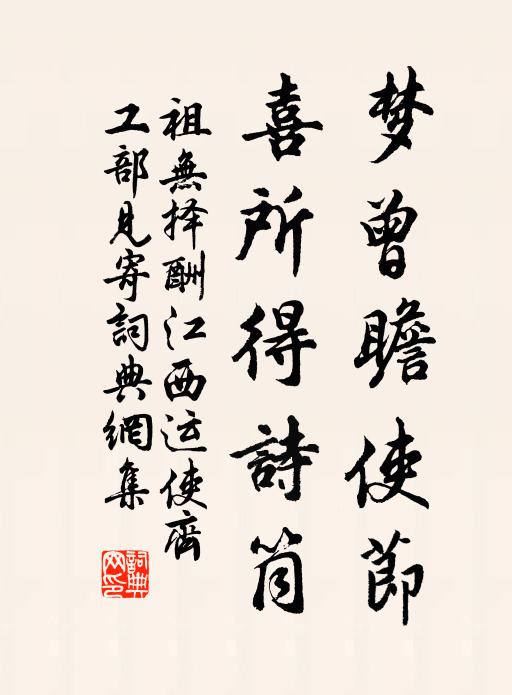 梦曾瞻使節
喜所得詩筒
祖無择酬江西运使齊
工部見寄詞典網集
詞典网印